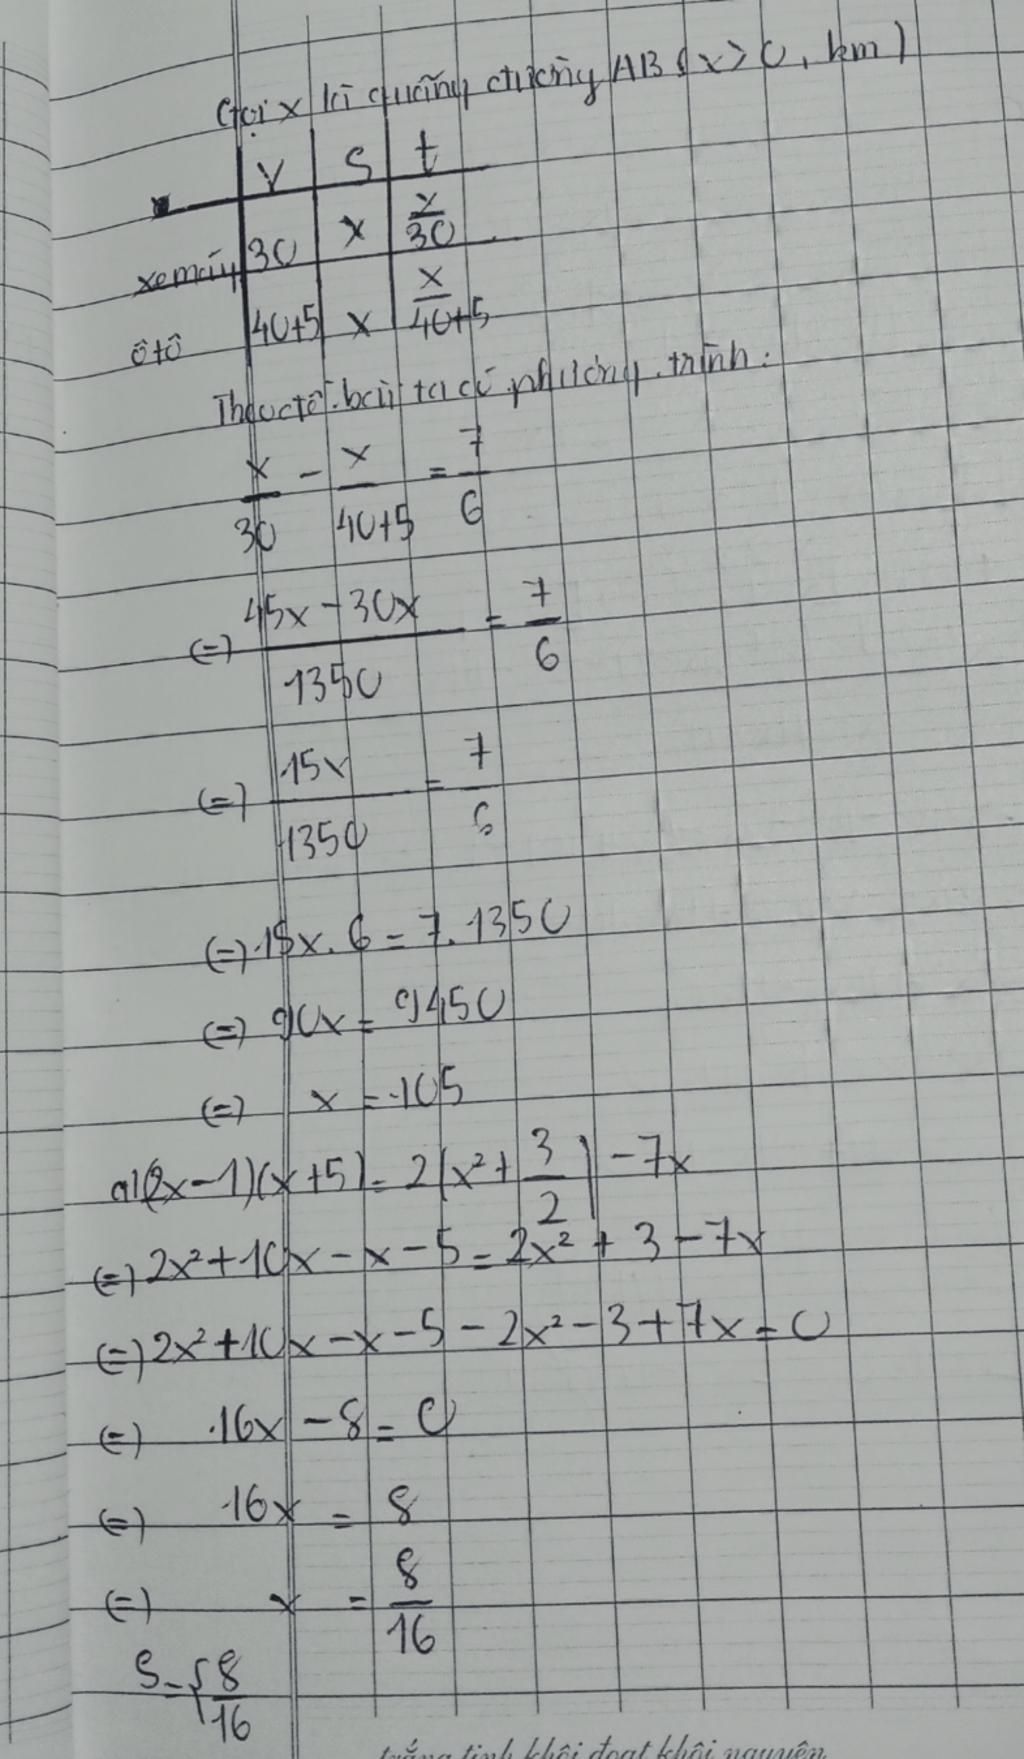 Gọi x là quãng đường AB (x > 0, km)
v s t
xe máy 30 x x/30
ô tô 40+5 x x/40+5
Theo đề bài ta có phương trình:
x/30 - x/40+5 = 7/6
(=) 45x - 30x/1350 = 7/6
(=) 15x/1350 = 7/6
(=) 15x. 6 = 7. 1350
(=) 90x = 9450
(=) x = 105
a) (2x - 1)(x + 5) = 2(x² + 3/2) - 7x
(=) 2x² + 10x - x - 5 = 2x² + 3 - 7x
(=) 2x² + 10x - x - 5 - 2x² - 3 + 7x = 0
(=) 16x - 8 = 0
(=) 16x = 8
(=) x = 8/16
S = { 8/16
trắng tinh khôi đoạt khôi nguyên